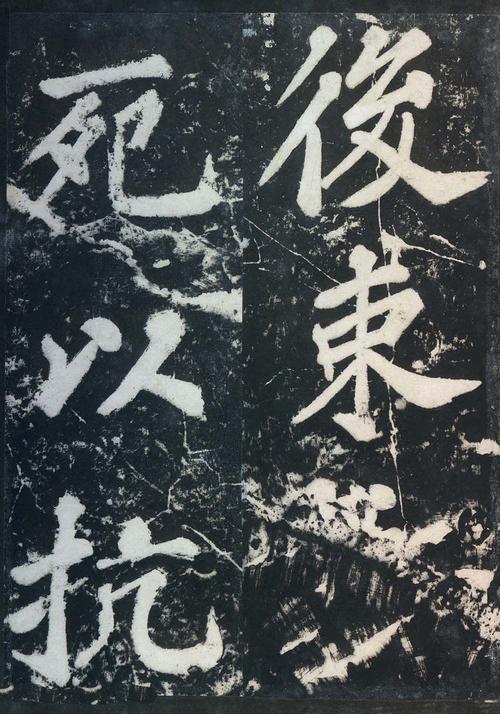 後東
死以抗